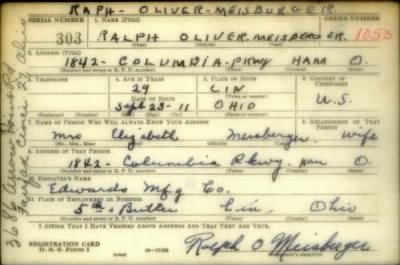 RAPH - OLIVER - MEISBURGER.
SERIAL NUMBER
1. NAME (Print)
ORDER NUMBER
303
RALPH OLIVER MEISBERGER.
1053
(First) (Middle) (Last)
2. ADDRESS (Print)
1842 - COLUMBIA - PKWY HAM O.
(Number and street or R. F. D. number) (Town) (County) (State)
3. TELEPHONE
4. AGE IN YEARS
5. PLACE OF BIRTH
6. COUNTRY OF CITIZENSHIP
29
CIN
DATE OF BIRTH
(Town or county)
U.S.
Sept 23 - 11
OHIO
(Exchange) (No.) (Mo.) (Day) (Yr.) (State or country)
7. NAME OF PERSON WHO WILL ALWAYS KNOW YOUR ADDRESS
8. RELATIONSHIP OF THAT PERSON
Mrs Elizabeth Meisberger. Wife
(Mr., Mrs., Miss) (First) (Middle) (Last)
9. ADDRESS OF THAT PERSON
1842 - Columbia Pkwy. Ham O.
(Number and street or R. F. D. number) (Town) (County) (State)
10. EMPLOYER'S NAME
Edwards Mfg Co.
11. PLACE OF EMPLOYMENT OR BUSINESS
5th & Butler Cin, Ohio
(Number and street or R. F. D. number) (Town) (County) (State)
I AFFIRM THAT I HAVE VERIFIED ABOVE ANSWERS AND THAT THEY ARE TRUE.
REGISTRATION CARD
D. S. S. Form 1
Ralph O Meisberger
(Registrant's signature)